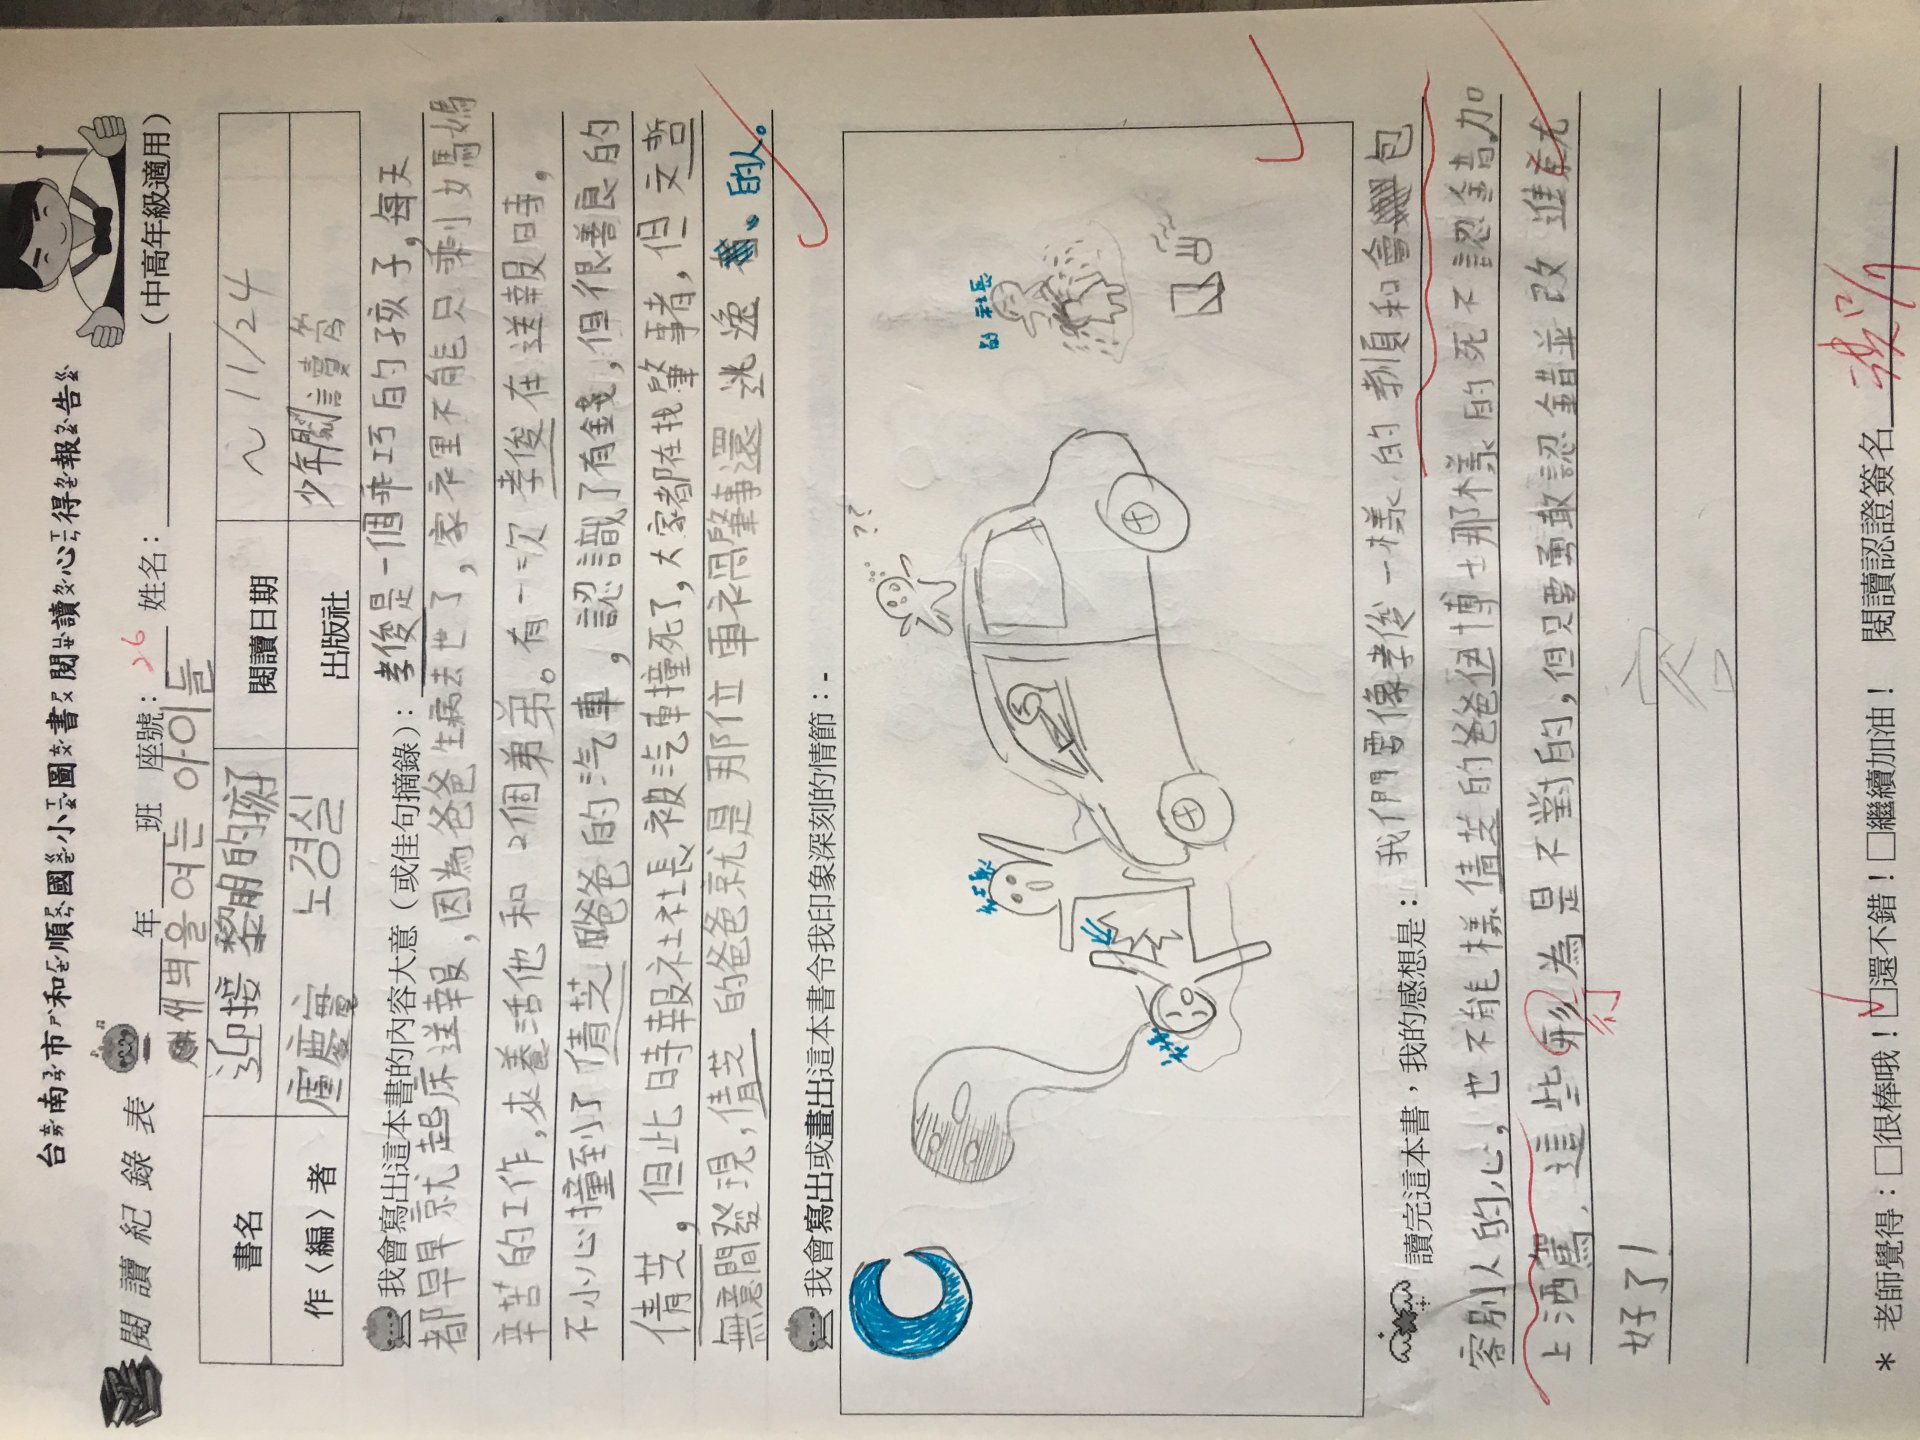 台南市和順國小圖書閱讀心得報告
閱讀紀錄表 （中高年級適用）
年 班 座號：26 姓名：
새벽을 여는 아이들
書名 迎接黎明的孩子 閱讀日期 ~ 11/24
作〈編〉者 盧慶實 노경실 出版社 少年閱讀篇
我會寫出這本書的內容大意（或佳句摘錄）： 孝俊是一個乖巧的孩子，每天
都早早就起床送報，因為爸爸生病去世了，家裡不能只剩媽媽
辛苦的工作，來養活他和2個弟弟。有一次孝俊在送報時，
不小心撞到了倩芝爸爸的汽車，認識了有錢，但很善良的
倩芝，但此時報社社長被汽車撞死了，大家都在找肇事者，但文哲
無意間發現，倩芝的爸爸就是那位車禍肇事還逃逸的人。
我會寫出或畫出這本書令我印象深刻的情節：-
??
的 社長
讀完這本書，我的感想是： 我們要像孝俊一樣的孝順和會包
容別人的心，也不能樣倩芝的爸爸伊博士那樣的死不認錯，加
上酒駕，這些形為是不對的，但只要勇敢認錯並改進就
行
好了！
* 老師覺得：□很棒哦！□還不錯！□繼續加油！ 閱讀認證簽名